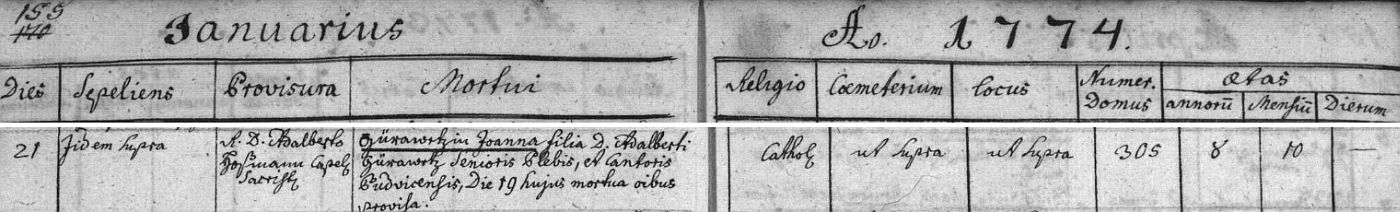 155
140
Januarius
Ao. 1774.
Dies Sepeliens Provisura Mortui Religio Coemeterium Locus Numer. Domus ætas annorū Mensiū Dierum
21 Jidem Supra A. D. Adalberto Gürawetzin Joanna filia D. Adalberti Cathol ut Supra ut Supra 305 8 10 —
Hofmann Capel Gürawetz Senioris Plebis, et Cantoris
Sacrist Budvicensis, Die 19 hujus mortua oibus
Provisa.